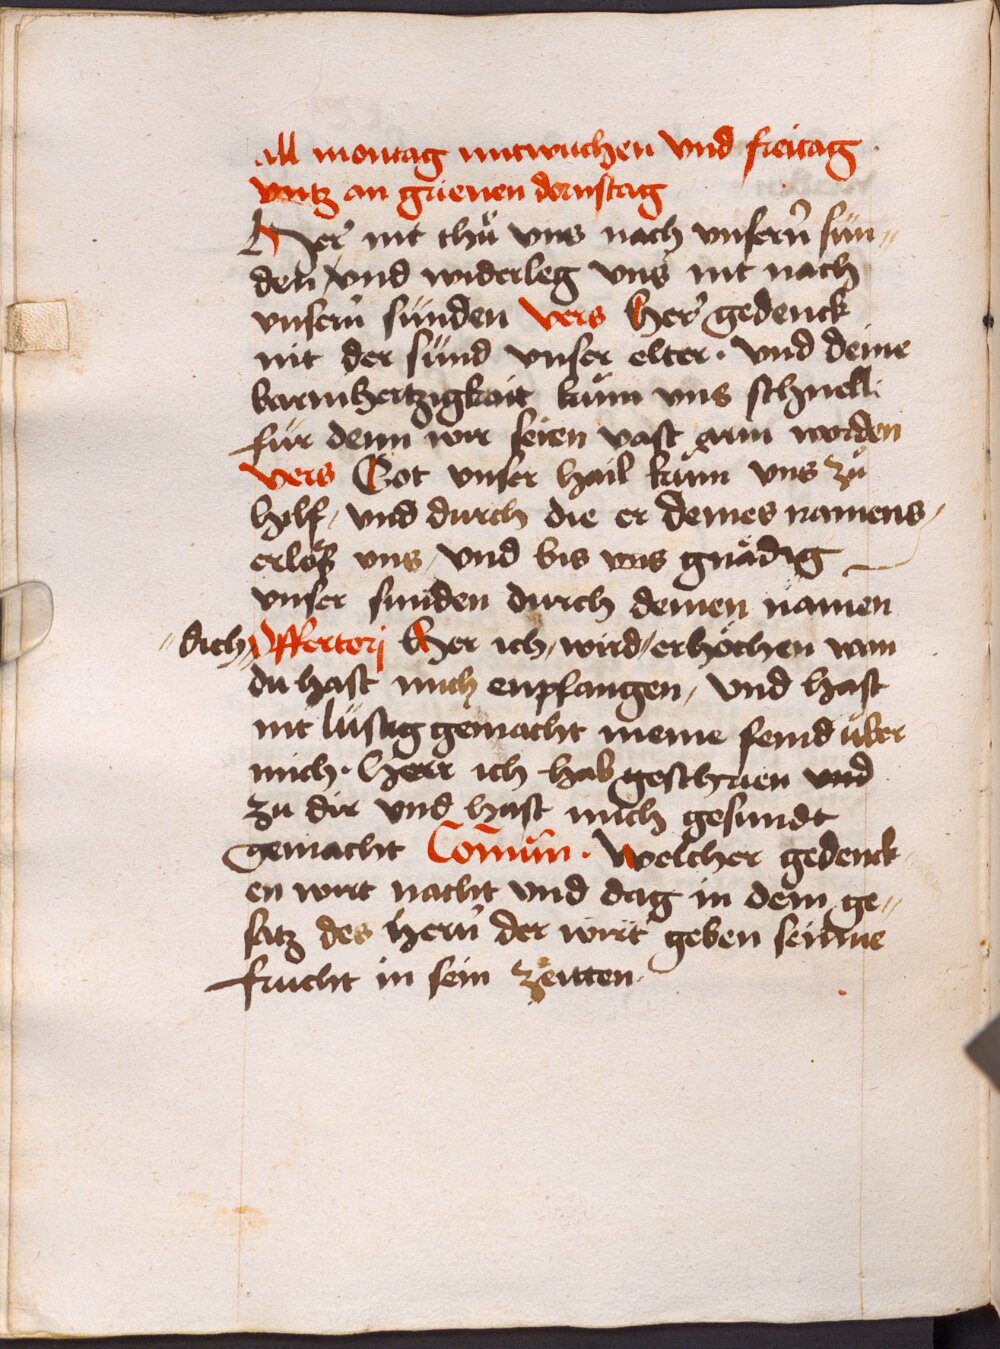 all montag mitwuchen vnd freitag
vntz an grienen dornstag
Her nit thů vns nach vnsern̄ sün„
den / vnd widerleg vns nit nach
vnsern̄ sünden vers Her gedenck
nit der sünd vnser elter · vnd deine
barmhertzigkait kům vns schnell
für denn wir seien vast arm worden
vers Got vnser hail kům vns zů
hilf / vnd durch die er deines namens /
erlöß vns / vnd bis vns gnädig
vnser sunden durch deinen namen
„dich„ Offertorj Her ich / wird„ erhöchen wan
du hast mich enpfangen / vnd hast
nit lüstig gemacht meine feind über
mich · Herr ich hab geschrien vnd
zu dir vnd hast mich gesundt
gemacht Com̄un̄ · Welcher gedenck
en wirt nacht vnd dag in dem ge„
satz des hern̄ der wirt geben seinne
frucht in sein zeitten ·